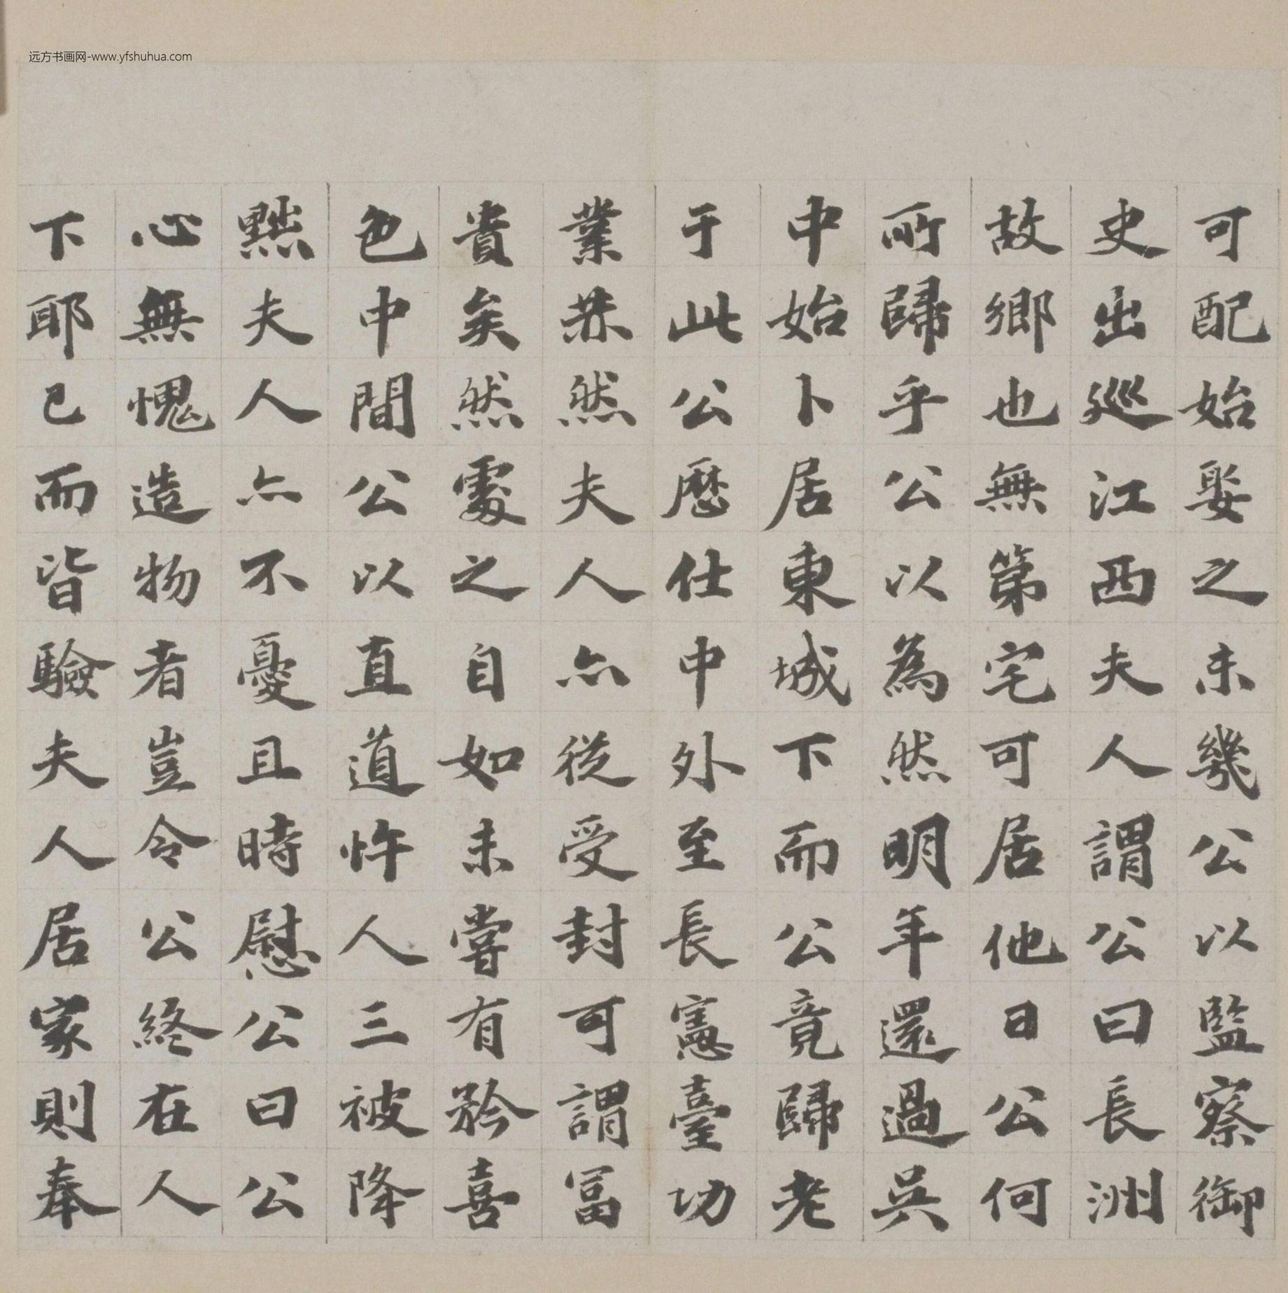 远方书画网-www.yfshuhua.com
可配始娶之未幾公以監察御
史出巡江西夫人謂公曰長洲
故鄉也無第宅可居他日公何
所歸乎公以為然明年還過吳
中始卜居東城下而公竟歸老
于此公歷仕中外至長憲臺功
業赫然夫人亦從受封可謂富
貴矣然處之自如未嘗有矜喜
色中間公以直道忤人三被降
黜夫人亦不憂且時慰公曰公
心無愧造物者豈令公終在人
下耶已而皆驗夫人居家則奉